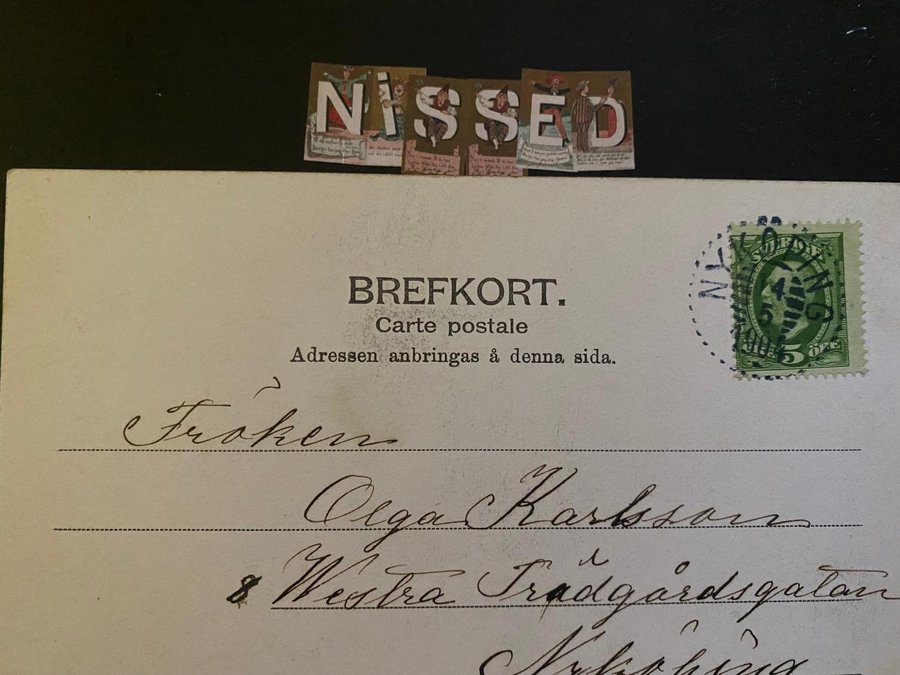 NiSSED
BREFKORT.
Carte postale
Adressen anbringas å denna sida.
NYKÖPING
4
5
5 ÖRE
Fröken
Olga Karlsson
8 Westra Trädgårdsgatan
Nyköping